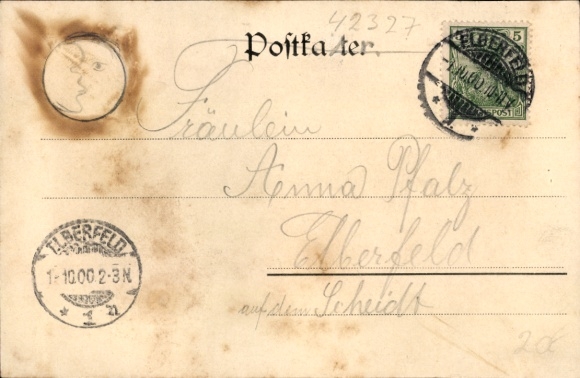 42327
Postkarter.
5
ELBERFELD
Fräulein
Anna Pfalz
Elberfeld
auf dem Scheidt
ELBERFELD
1.10.00.2-3N
* 1 n
20